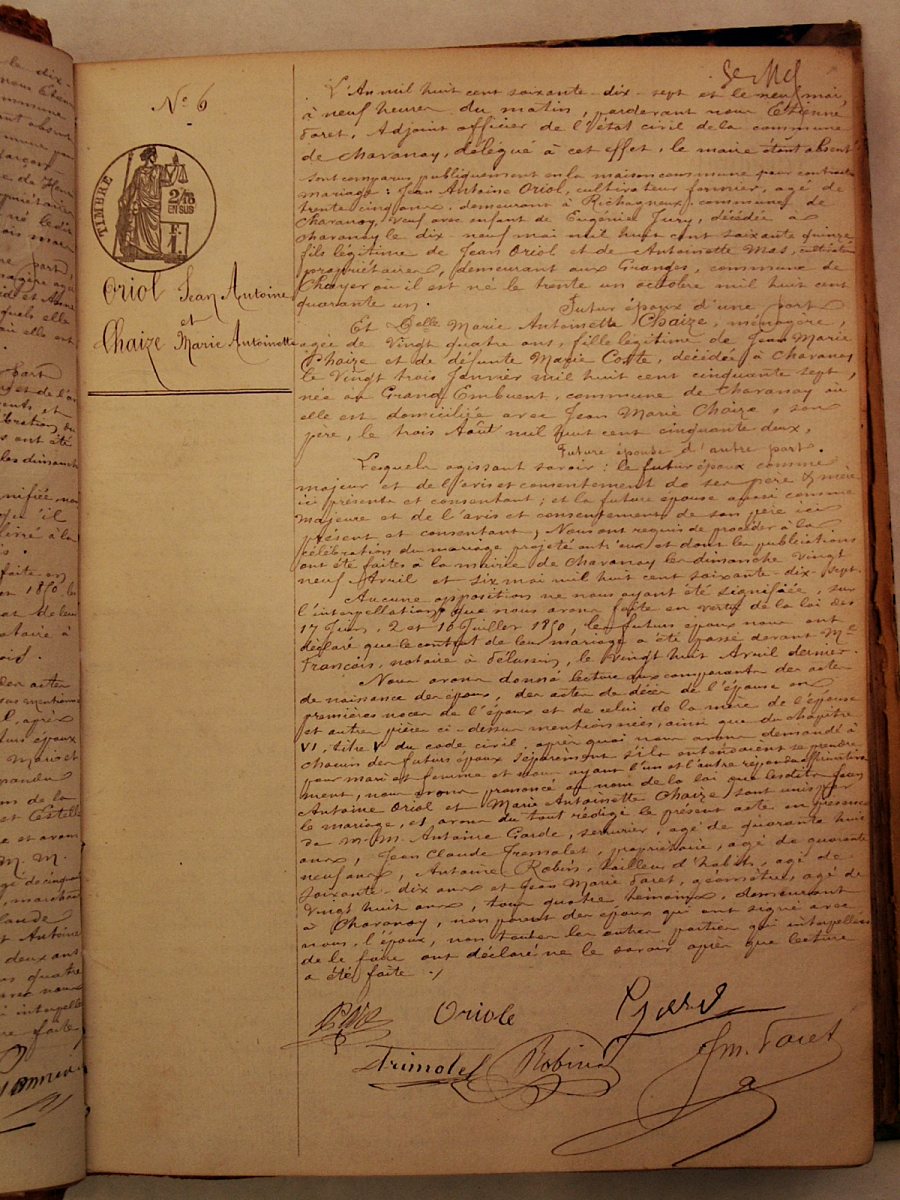 N° 6
TIMBRE
2/10
EN SUS
Oriol Jean Antoine
et
Chaize Marie Antoinette
L'An mil huit cent soixante-dix-sept et le neuf mai,
à neuf heures du matin, pardevant nous Etienne
Faret, Adjoint officier de l'état civil de la commune
de Chavanay, délégué à cet effet, le maire étant absent
sont comparus publiquement en la maison commune pour contracter
mariage : Jean Antoine Oriol, cultivateur fermier, agé de
trente cinq ans, demeurant à Richagneux, commune de
Chavanay, veuf avec enfant de Eugénie Jury, décédée à
Chavanay le dix-neuf mai mil huit cent soixante quinze
fils légitime de Jean Oriol et de Antoinette Mas, cultivateurs
propriétaires, demeurant aux Granges, commune de
où il est né le trente un octobre mil huit cent
quarante un.
Futur époux d'une part
Et Delle Marie Antoinette Chaize, ménagère,
agée de Vingt quatre ans, fille légitime de Jean Marie
Chaize et de défunte Marie Coste, décédée à Chavanay
le Vingt trois Janvier mil huit cent cinquante sept,
née au Grand Embuent, commune de Chavanay où
elle est domiciliée avec Jean Marie Chaize, son
père, le trois Août mil huit cent cinquante deux,
Future épouse d'autre part.
Lesquels agissant savoir : le futur époux comme
majeur et de l'avis et consentement de ses père & mère
ici présents et consentant ; et la future épouse aussi comme
majeure et de l'avis et consentement de son père ici
présent et consentant, Nous ont requis de procéder à la
célébration du mariage projeté entr'eux et dont les publications
ont été faites à la mairie de Chavanay les dimanche vingt
neuf Avril et six mai mil huit cent soixante-dix-sept.
Aucune opposition ne nous ayant été signifiée, sur
l'interpellation que nous avons faite en vertu de la loi des
17 Juin, 2 et 10 Juillet 1850, les futurs époux nous ont
déclaré que le contrat de leur mariage a été passé devant Me
François, notaire à Pélussin, le vingt huit Avril dernier.
Nous avons donné lecture aux comparants des actes
de naissance des époux, des actes de décès de l'épouse en
premières noces de l'époux et de celui de la mère de l'épouse
et autres pièces ci-dessus mentionnées, ainsi que du chapitre
VI, titre V du code civil, après quoi nous avons demandé à
chacun des futurs époux séparément s'ils entendaient se prendre
pour mari et femme et nous ayant l'un et l'autre répondu affirmative
ment, nous avons prononcé au nom de la loi que lesdits Jean
Antoine Oriol et Marie Antoinette Chaize sont unis par
le mariage, et avons du tout rédigé le présent acte en présence
de M.M. Antoine Garde, serrurier, agé de quarante huit
ans, Jean Claude Tremolet, propriétaire, agé de quarante
neuf ans, Antoine Robin, tailleur d'habits, agé de
soixante-dix ans et Jean Marie Faret, géomètre, agé de
vingt huit ans, tous quatre témoins, demeurant
à Chavanay, non parents des époux qui ont signé avec
nous, l'époux, non toutes les autres parties qui interpellées
de le faire ont déclaré ne le savoir après que lecture
a été faite ./
Oriole
Trimolet
Robin
Jm. Faret